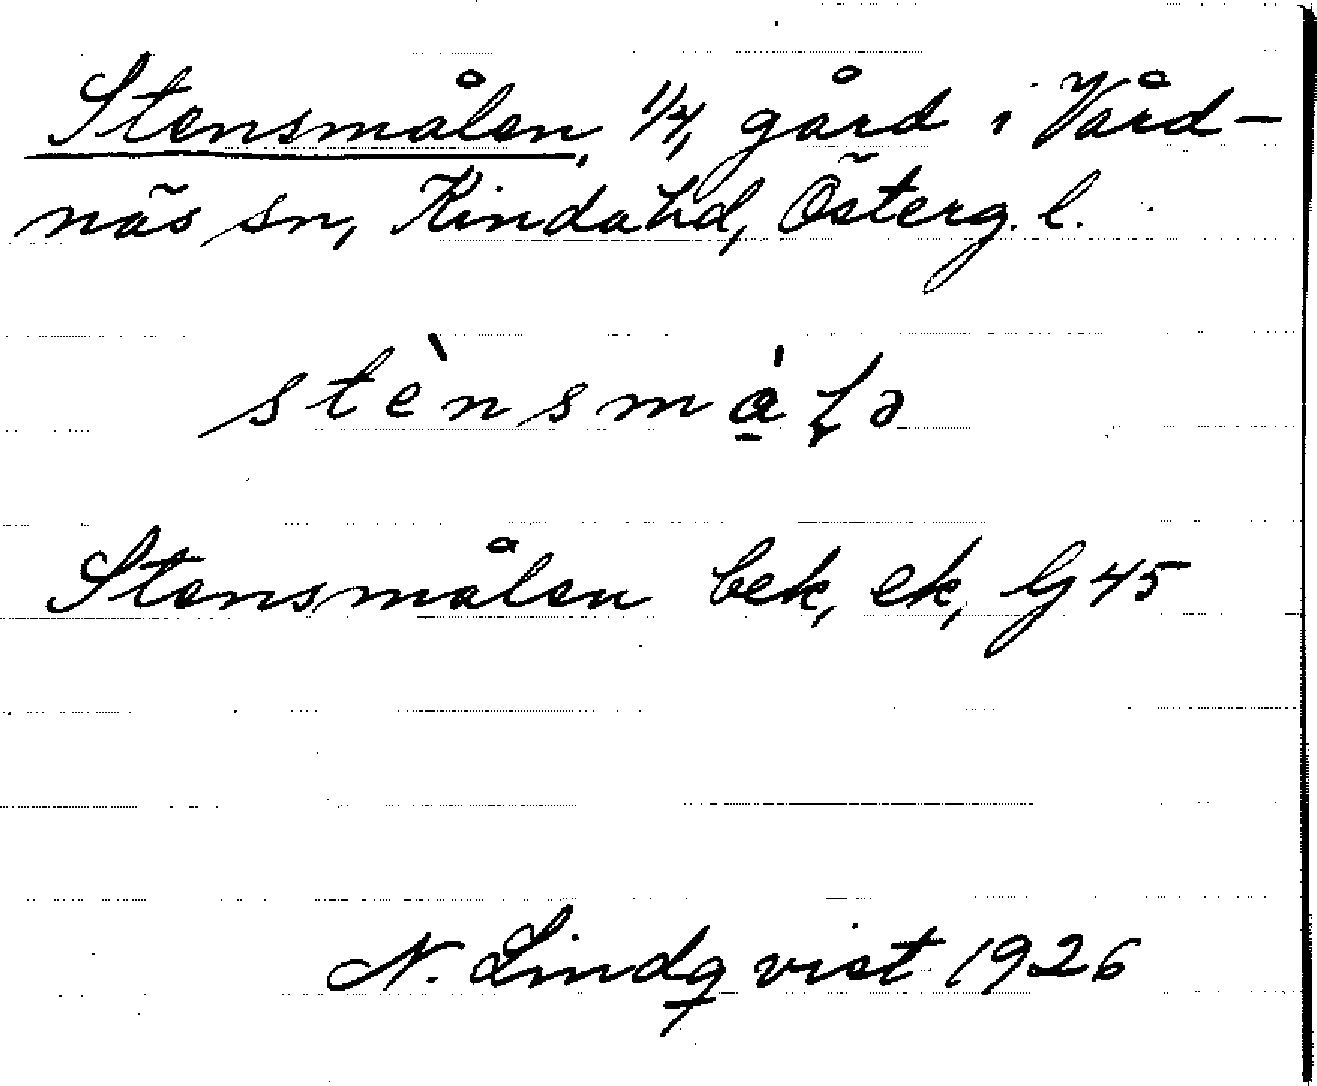 Stensmålen, 1/4, gård i Vård-
näs sn, Kinda hd, Österg. l.
stènsmå̀lə
Stensmålen bek, ek, Gg 45
N. Lindqvist 1926